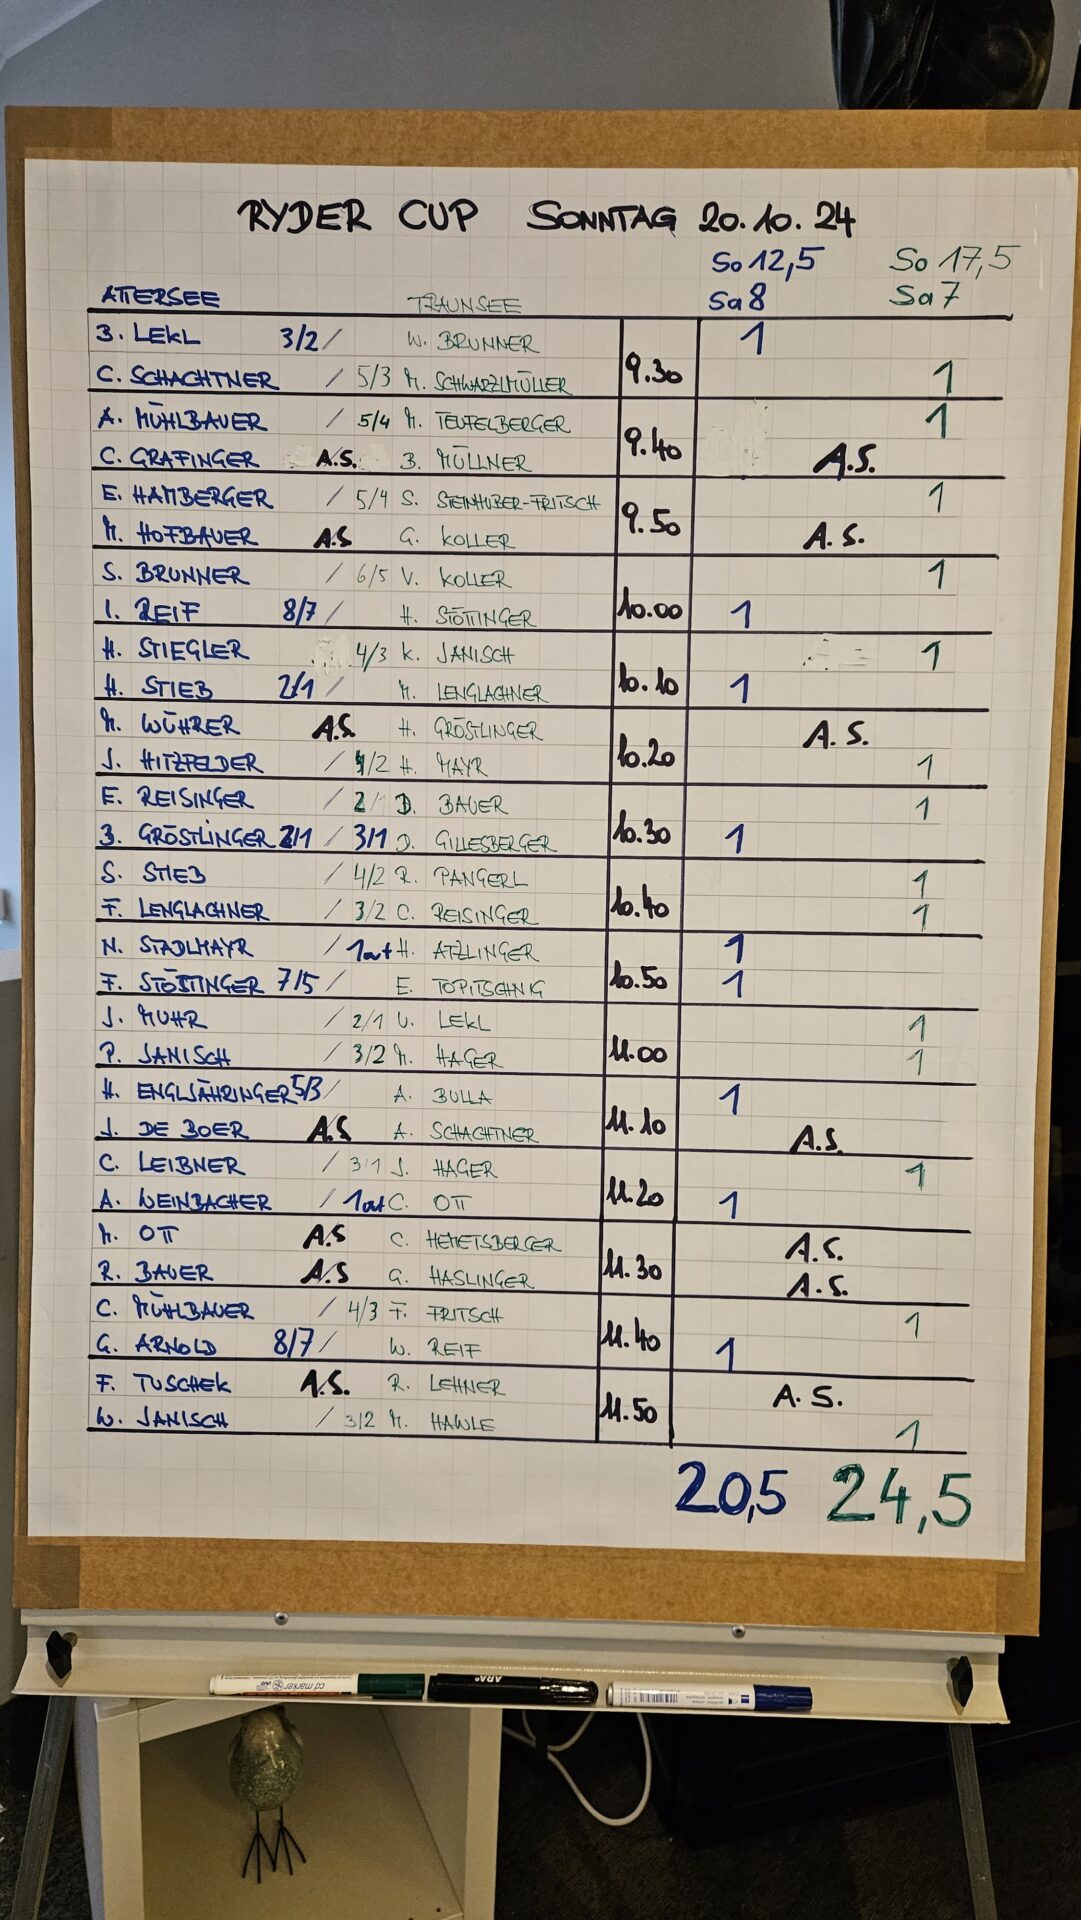 RYDER CUP SONNTAG 20.10.24
So 12,5 So 17,5
ATTERSEE TRAUNSEE Sa 8 Sa 7
B. LEKL 3/2 / W. BRUNNER 1
9.30
C. SCHACHTNER / 5/3 M. SCHWARZLMÜLLER 1
A. MÜHLBAUER / 5/4 M. TEUFELBERGER 1
9.40
C. GRAFINGER A.S. B. MÜLLNER A.S.
E. HAMBERGER / 5/4 S. STEINHUBER-FRITSCH 1
9.50
M. HOFBAUER A.S G. KOLLER A.S.
S. BRUNNER / 6/5 V. KOLLER 1
10.00
I. REIF 8/7 / H. STÖTTINGER 1
H. STIEGLER 4/3 K. JANISCH 1
10.10
H. STIEB 2/1 / M. LENGLACHNER 1
M. WÜHRER A.S. H. GRÖSTLINGER A.S.
10.20
J. HITZFELDER / /2 H. MAYR 1
E. REISINGER / 2/1 D. BAUER 1
10.30
B. GRÖSTLINGER /1 / 3/1 D. GILLESBERGER 1
S. STIEB / 4/2 R. PANGERL 1
10.40
F. LENGLACHNER / 3/2 C. REISINGER 1
N. STADLMAYR / 1out H. ATZLINGER 1
10.50
F. STÖTTINGER 7/5 / E. TOPITSCHNIG 1
J. MUHR / 2/1 U. LEKL 1
11.00
P. JANISCH / 3/2 M. HAGER 1
H. ENGLJÄHRINGER 5/3 / A. BULLA 1
11.10
J. DE BOER A.S A. SCHACHTNER A.S.
C. LEIBNER / 3/1 J. HAGER 1
11.20
A. WEINBACHER / 1out C. OTT 1
M. OTT A.S C. HEMETSBERGER A.S.
11.30
R. BAUER A.S G. HASLINGER A.S.
C. MÜHLBAUER / 4/3 F. FRITSCH 1
11.40
G. ARNOLD 8/7 / W. REIF 1
F. TUSCHEK A.S. R. LEHNER A.S.
11.50
W. JANISCH / 3/2 M. HAWLE 1
20,5 24,5
cd marker